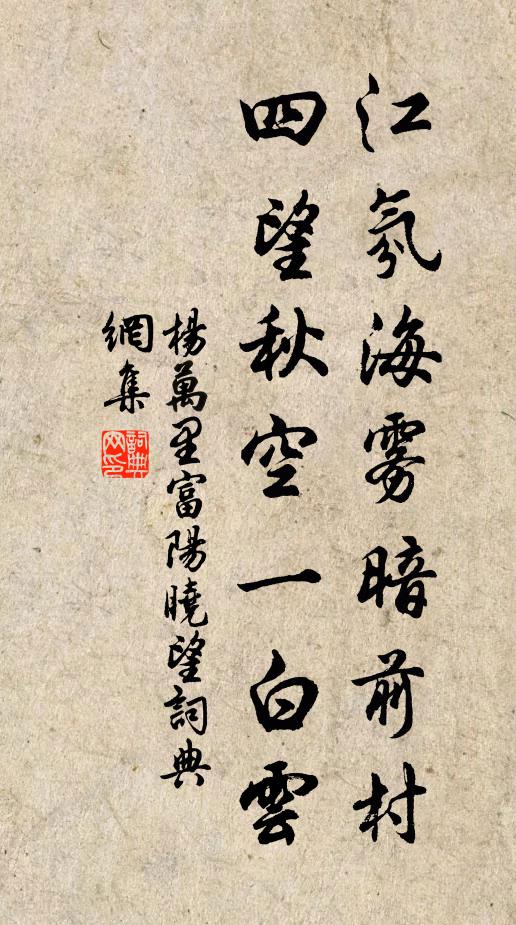 江氛海雾暗前村
四望秋空一白雲
楊萬里富陽曉望詞典
網集
詞典网印